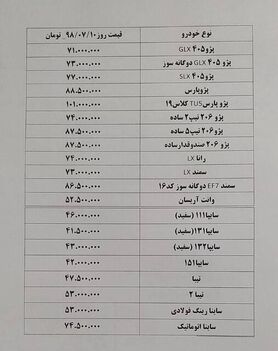 نوع خودرو قیمت روز ۹۸/۰۷/۱۰ تومان
پژو ۴۰۵ GLX ۷۱.۰۰۰.۰۰۰
پژو ۴۰۵ GLX دوگانه سوز ۷۳.۰۰۰.۰۰۰
پژو ۴۰۵ SLX ۷۷.۰۰۰.۰۰۰
پژوپارس ۸۸.۵۰۰.۰۰۰
پژو پارس TU5 کلاس ۱۹ ۱۰۱.۰۰۰.۰۰۰
پژو ۲۰۶ تیپ ۲ ساده ۷۴.۰۰۰.۰۰۰
پژو ۲۰۶ تیپ ۵ ساده ۸۷.۰۰۰.۰۰۰
پژو ۲۰۶ صندوقدار ساده ۸۷.۵۰۰.۰۰۰
رانا LX ۷۴.۰۰۰.۰۰۰
سمند LX ۷۳.۰۰۰.۰۰۰
سمند EF7 دوگانه سوز کد ۱۶ ۸۶.۵۰۰.۰۰۰
وانت آریسان ۵۲.۵۰۰.۰۰۰
سایپا ۱۱۱ (سفید) ۴۶.۰۰۰.۰۰۰
سایپا ۱۳۱ (سفید) ۴۱.۵۰۰.۰۰۰
سایپا ۱۳۲ (سفید) ۴۳.۰۰۰.۰۰۰
سایپا ۱۵۱ ۴۲.۰۰۰.۰۰۰
تیبا ۴۷.۵۰۰.۰۰۰
تیبا ۲ ۵۳.۰۰۰.۰۰۰
ساینا رینگ فولادی ۵۳.۰۰۰.۰۰۰
ساینا اتوماتیک ۷۴.۵۰۰.۰۰۰